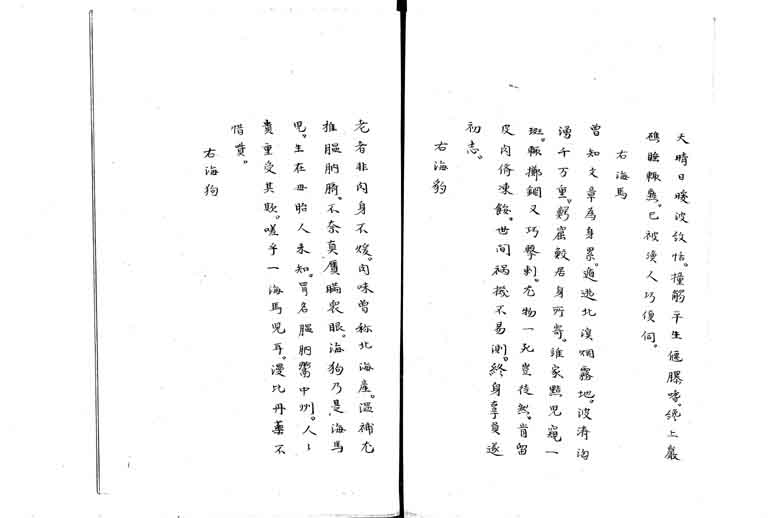 天晴日暖波紋恬。撞觸平生便曝嗜。繞上巖
礁睡輒熟。已被漁人巧便伺。
右海馬
曾知文章為身累。遁逃北溟烟霧地。波涛洶
湧千万重。鄂窟鮫居身所寄。誰家黠児窺一
斑。輒擲銛叉巧擊刺。尤物一死豈徒然。肯留
皮肉脩凍餒。世间禍機不易測。終身拿負遂
初志。
右海豹
老者非肉身不煖。肉味曾称北海産。温補尤
推膃肭臍。不奈真贋瞞衆眼。海狗乃是海馬
児。生在母胎人未知。冒名膃肭鬻中州。人々
貴重受其欺。嗟乎一海馬児耳。漫比丹藥不
惜貲。
右海狗